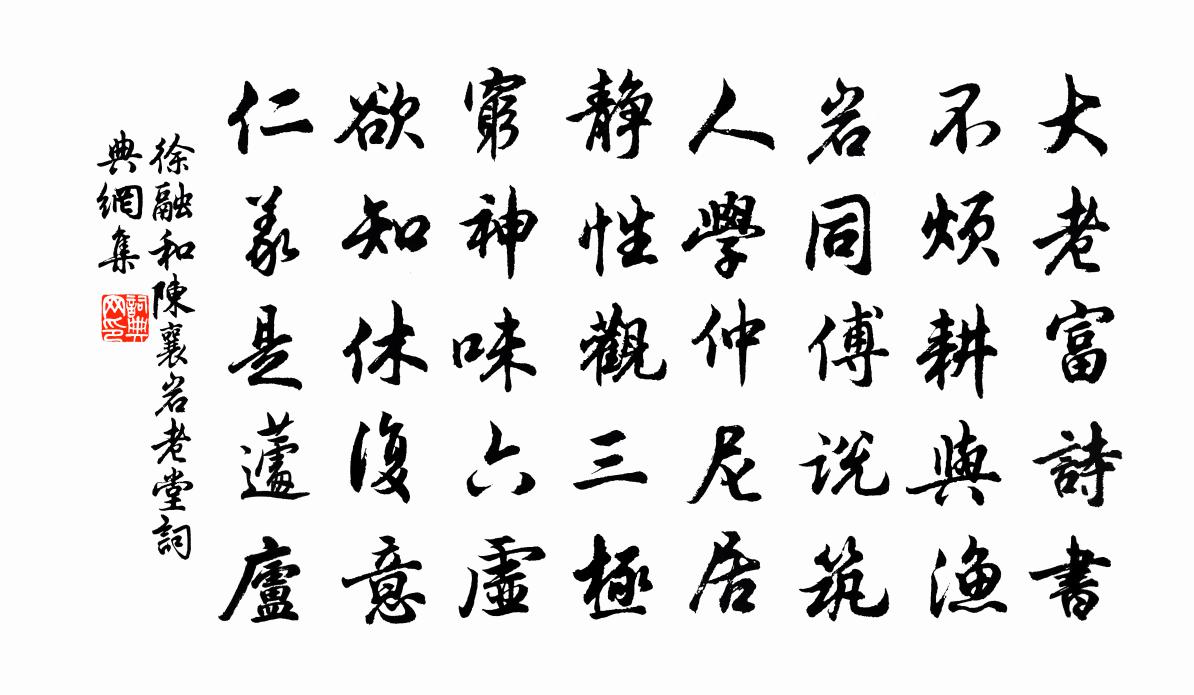 大老富詩書
不煩耕與漁
岩同傅說筑
人學仲尼居
静性觀三極
窮神味六虛
欲知休復意
仁義是蘧廬
徐融和陳襄岩老堂詞
典網集
詞典网印